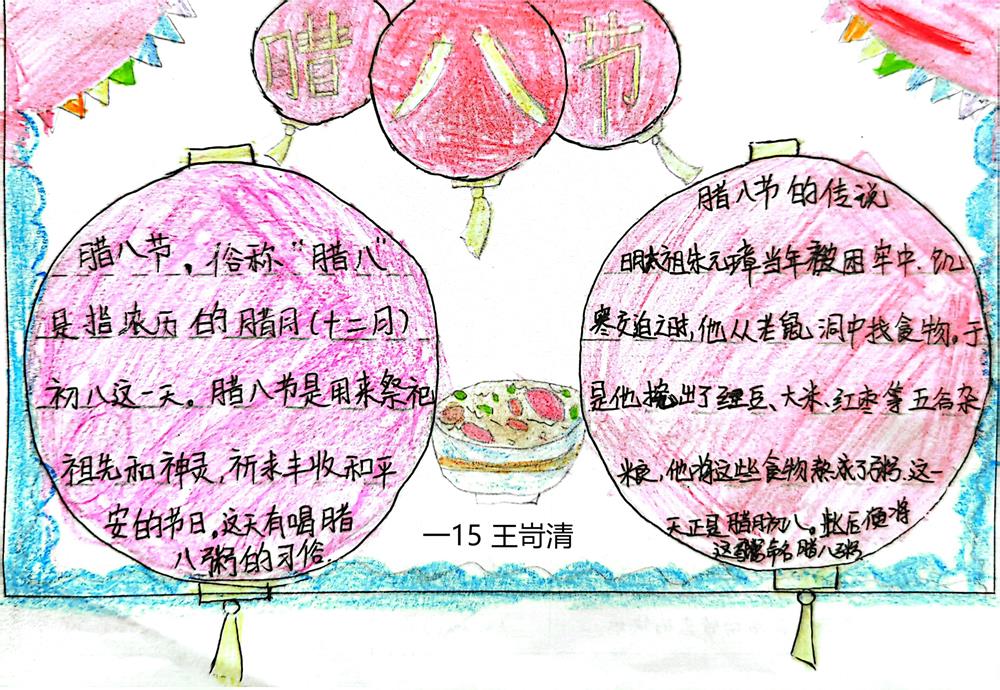 腊八节
腊八节，俗称“腊八”
是指农历的腊月(十二月)
初八这一天。腊八节是用来祭祀
祖先和神灵，祈求丰收和平
安的节日，这天有喝腊
八粥的习俗.
腊八节的传说
明太祖朱元璋当年被困牢中.饥
寒交迫之时,他从老鼠洞中找食物。于
是他挖出了红豆、大米、红枣等五谷杂
粮，他将这些食物熬成了粥.这一
天正是腊月初八。此后便将
这粥命名腊八粥
一15 王岢清